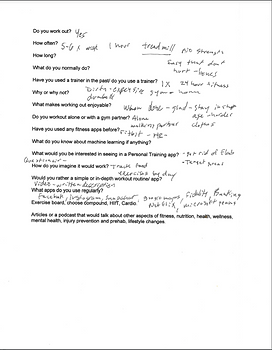 Do you work out? Yes
How often? 5-6 x week 1 hour treadmill no strength
How long?
What do you normally do? Easy that don't hurt - bones
Have you used a trainer in the past/ do you use a trainer? 1x 24 hour fitness
Why or why not? Dirty - expensive
What makes working out enjoyable? When done - glad - stay in shape
Do you workout alone or with a gym partner? Alone
walking partner clothes
Have you used any fitness apps before? Fitbit -
What do you know about machine learning if anything?
What would you be interested in seeing in a Personal Training app? - get rid of
How do you imagine it would work? - track food - Target areas
exercises by day
Would you rather a simple or in-depth workout routine/ app?
Video - written description
What apps do you use regularly?
Facebook, Instagram, google maps, Fidelity, Banking
Exercise board, choose compound, HIIT, Cardio. Netflix, microsoft
Articles or a podcast that would talk about other aspects of fitness, nutrition, health, wellness,
mental health, injury prevention and prehab, lifestyle changes.